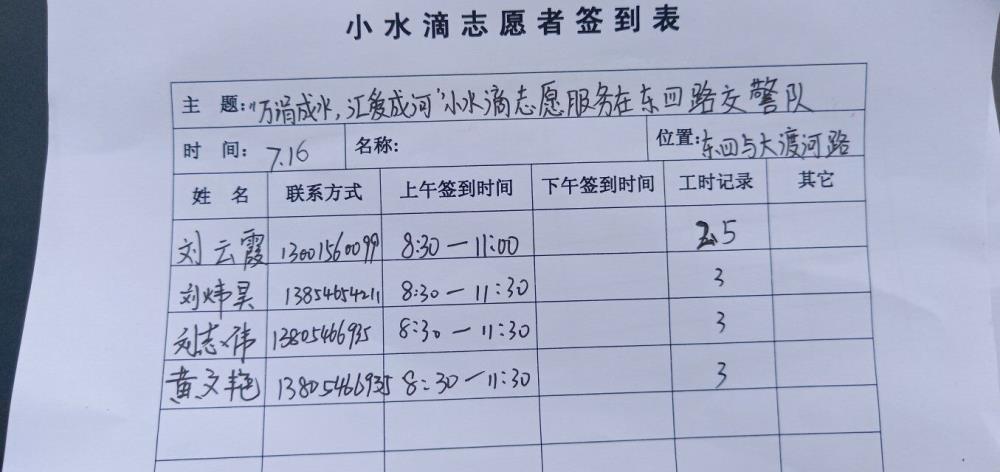 小水滴志愿者签到表
主 题:"万涓成水,汇爱成河"小水滴志愿服务在东四路交警队
时 间: 7.16 名称: 位置:东四与大渡河路
姓 名 联系方式 上午签到时间 下午签到时间 工时记录 其它
刘云霞 13001560099 8:30—11:00 2.5
刘炜昊 13854654211 8:30—11:30 3
刘志伟 13805466935 8:30—11:30 3
黄文艳 13805466935 8:30—11:30 3